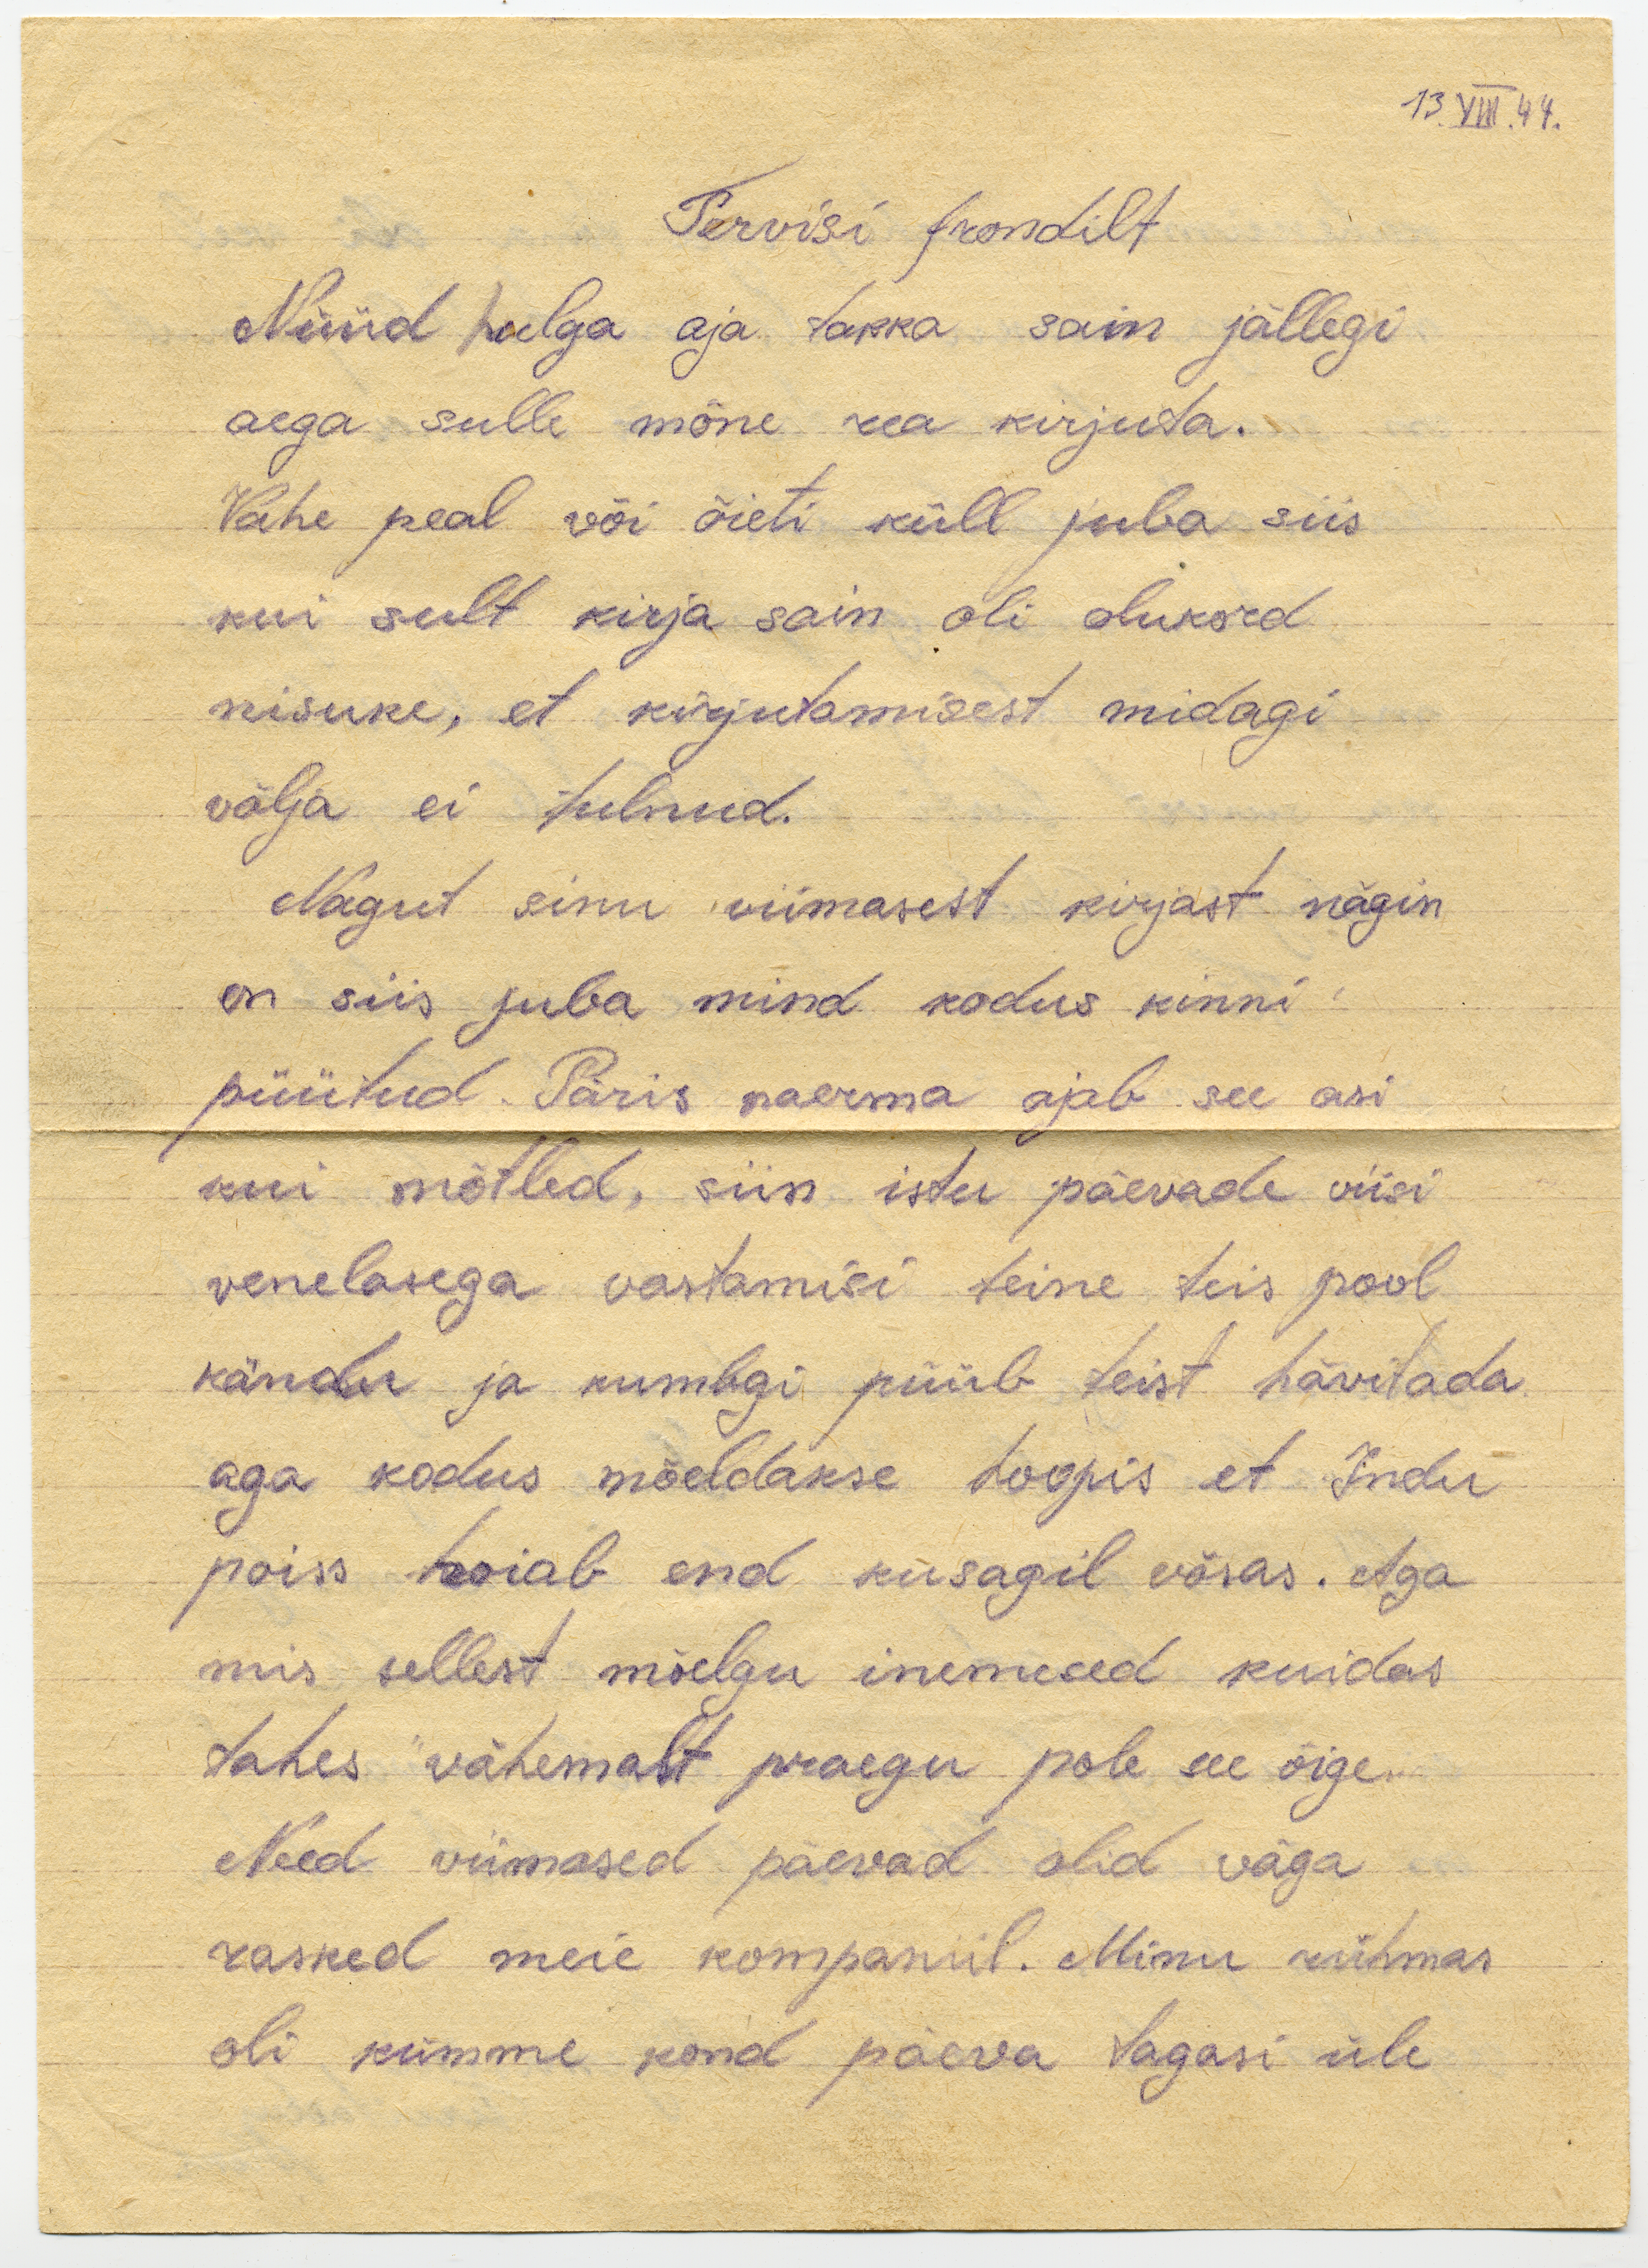 13.VIII.44.
Tervisi frondilt
Nüüd hulga aja takka sain jällegi
aega sulle mõne rea kirjuta.
Vahe peal või õieti küll juba siis
kui sult kirja sain oli olukord
nisuke, et kirjutamisest midagi
välja ei tulnud.
Nagut sinu viimasest kirjast nägin
on siis juba mind kodus kinni
püütud. Päris naerma ajab see asi
kui mõtled, siin istu päevade viisi
venelasega vastamisi teine teis pool
kändu ja kumbgi püüb teist hävitada
aga kodus mõeldakse hoopis et Indu
poiss hoiab end kusagil võsas. Aga
mis sellest mõelgu inemesed kuidas
tahes vähemalt praegu pole see õige.
Need viimased päevad olid väga
rasked meie kompaniil. Minu rühmas
oli kümme kond päeva tagasi üle